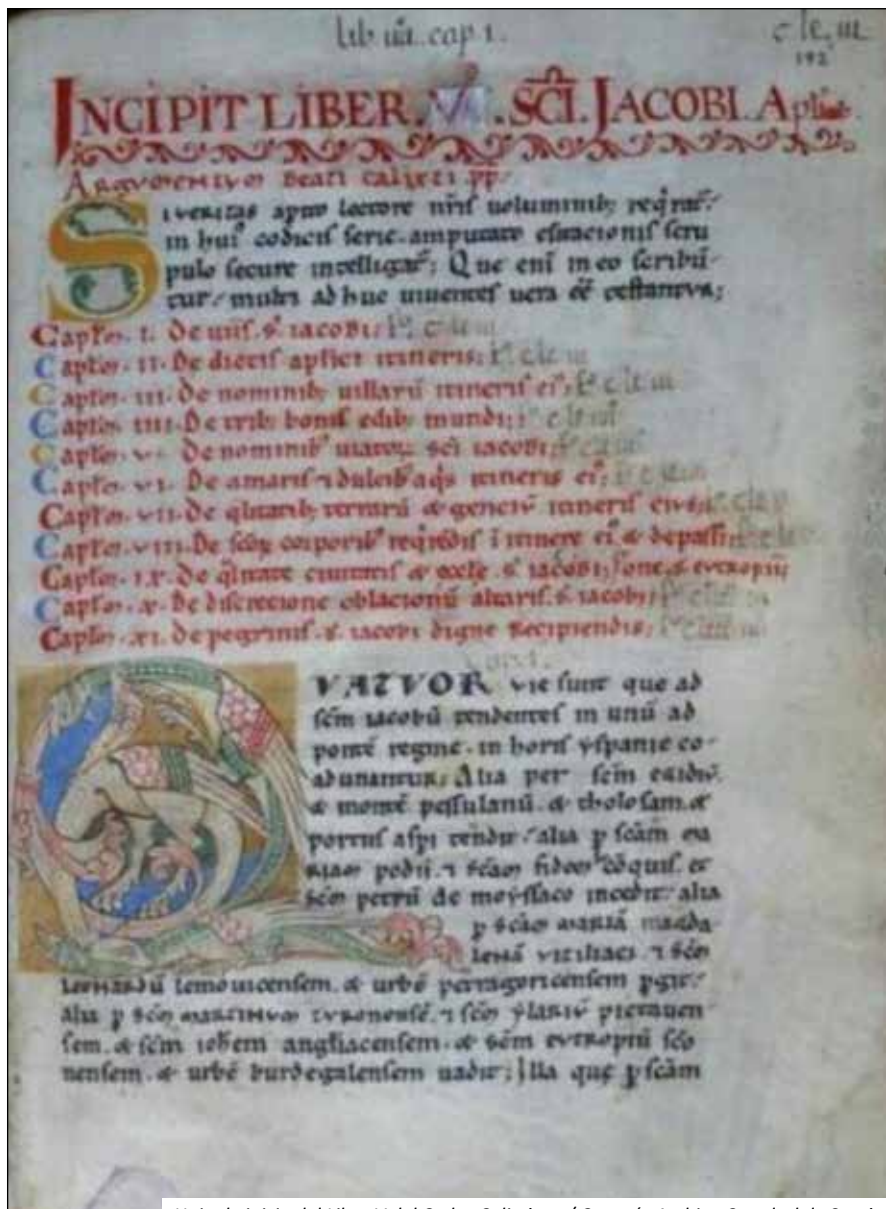 lib iiii. cap 1.
192
INCIPIT LIBER. .SCI. JACOBI. Apli.
Argumentum beati calixti pp.
Si veritas a lectore nris uoluminib; reqrat.
in hui codicis serie. amputato esitacionis scru
pulo secure intelligat; Que eni in eo scribu
tur. multi adhuc uiuentes uera ee testantur;
Captm. I. De uiis. s. iacobi;
Captm. II. De dietis aplici itineris;
Captm. III. De nominib; uillaru itineris ei;
Captm. IIII. De trib; bonis edib; mundi;
Captm. V. De nominib; uiator sci iacobi;
Captm. VI. De amaris 7 dulcib; aqs itineris ei;
Captm. VII. De qlitatib; terraru & genciu itineris eius;
Captm. VIII. De scor corporib; reqrdis i itinere ei & de passi
Captm. IX. De qlitate ciuitatis & eccle. s. iacobi; s. eutropii;
Captm. X. De discrecione oblacionu altaris. s. iacobi;
Captm. XI. De pegrinis. s. iacobi digne recipiendis;
QUATUOR vie sunt que ad
scm iacobu tendentes in unu ad
ponte regine. in horis yspanie co
adunantur; Alia per scm egidiu.
& monte pessulanu. & tholosam. &
portus aspi tendit. alia p scam ma
riam podii. 7 scam fidem coquis. et
scm petru de moyssaco incedit. alia
p scam maria magda
lena viziliaci. 7 scm
leonardu lemouicensem. & urbe petragoricensem pgit.
Alia p scm martinum turonense. 7 scm ylariu pictauen
sem. & scm iohem angliacensem. & scm eutropiu sco
nensem. & urbe burdegalensem uadit; Illa que p scam